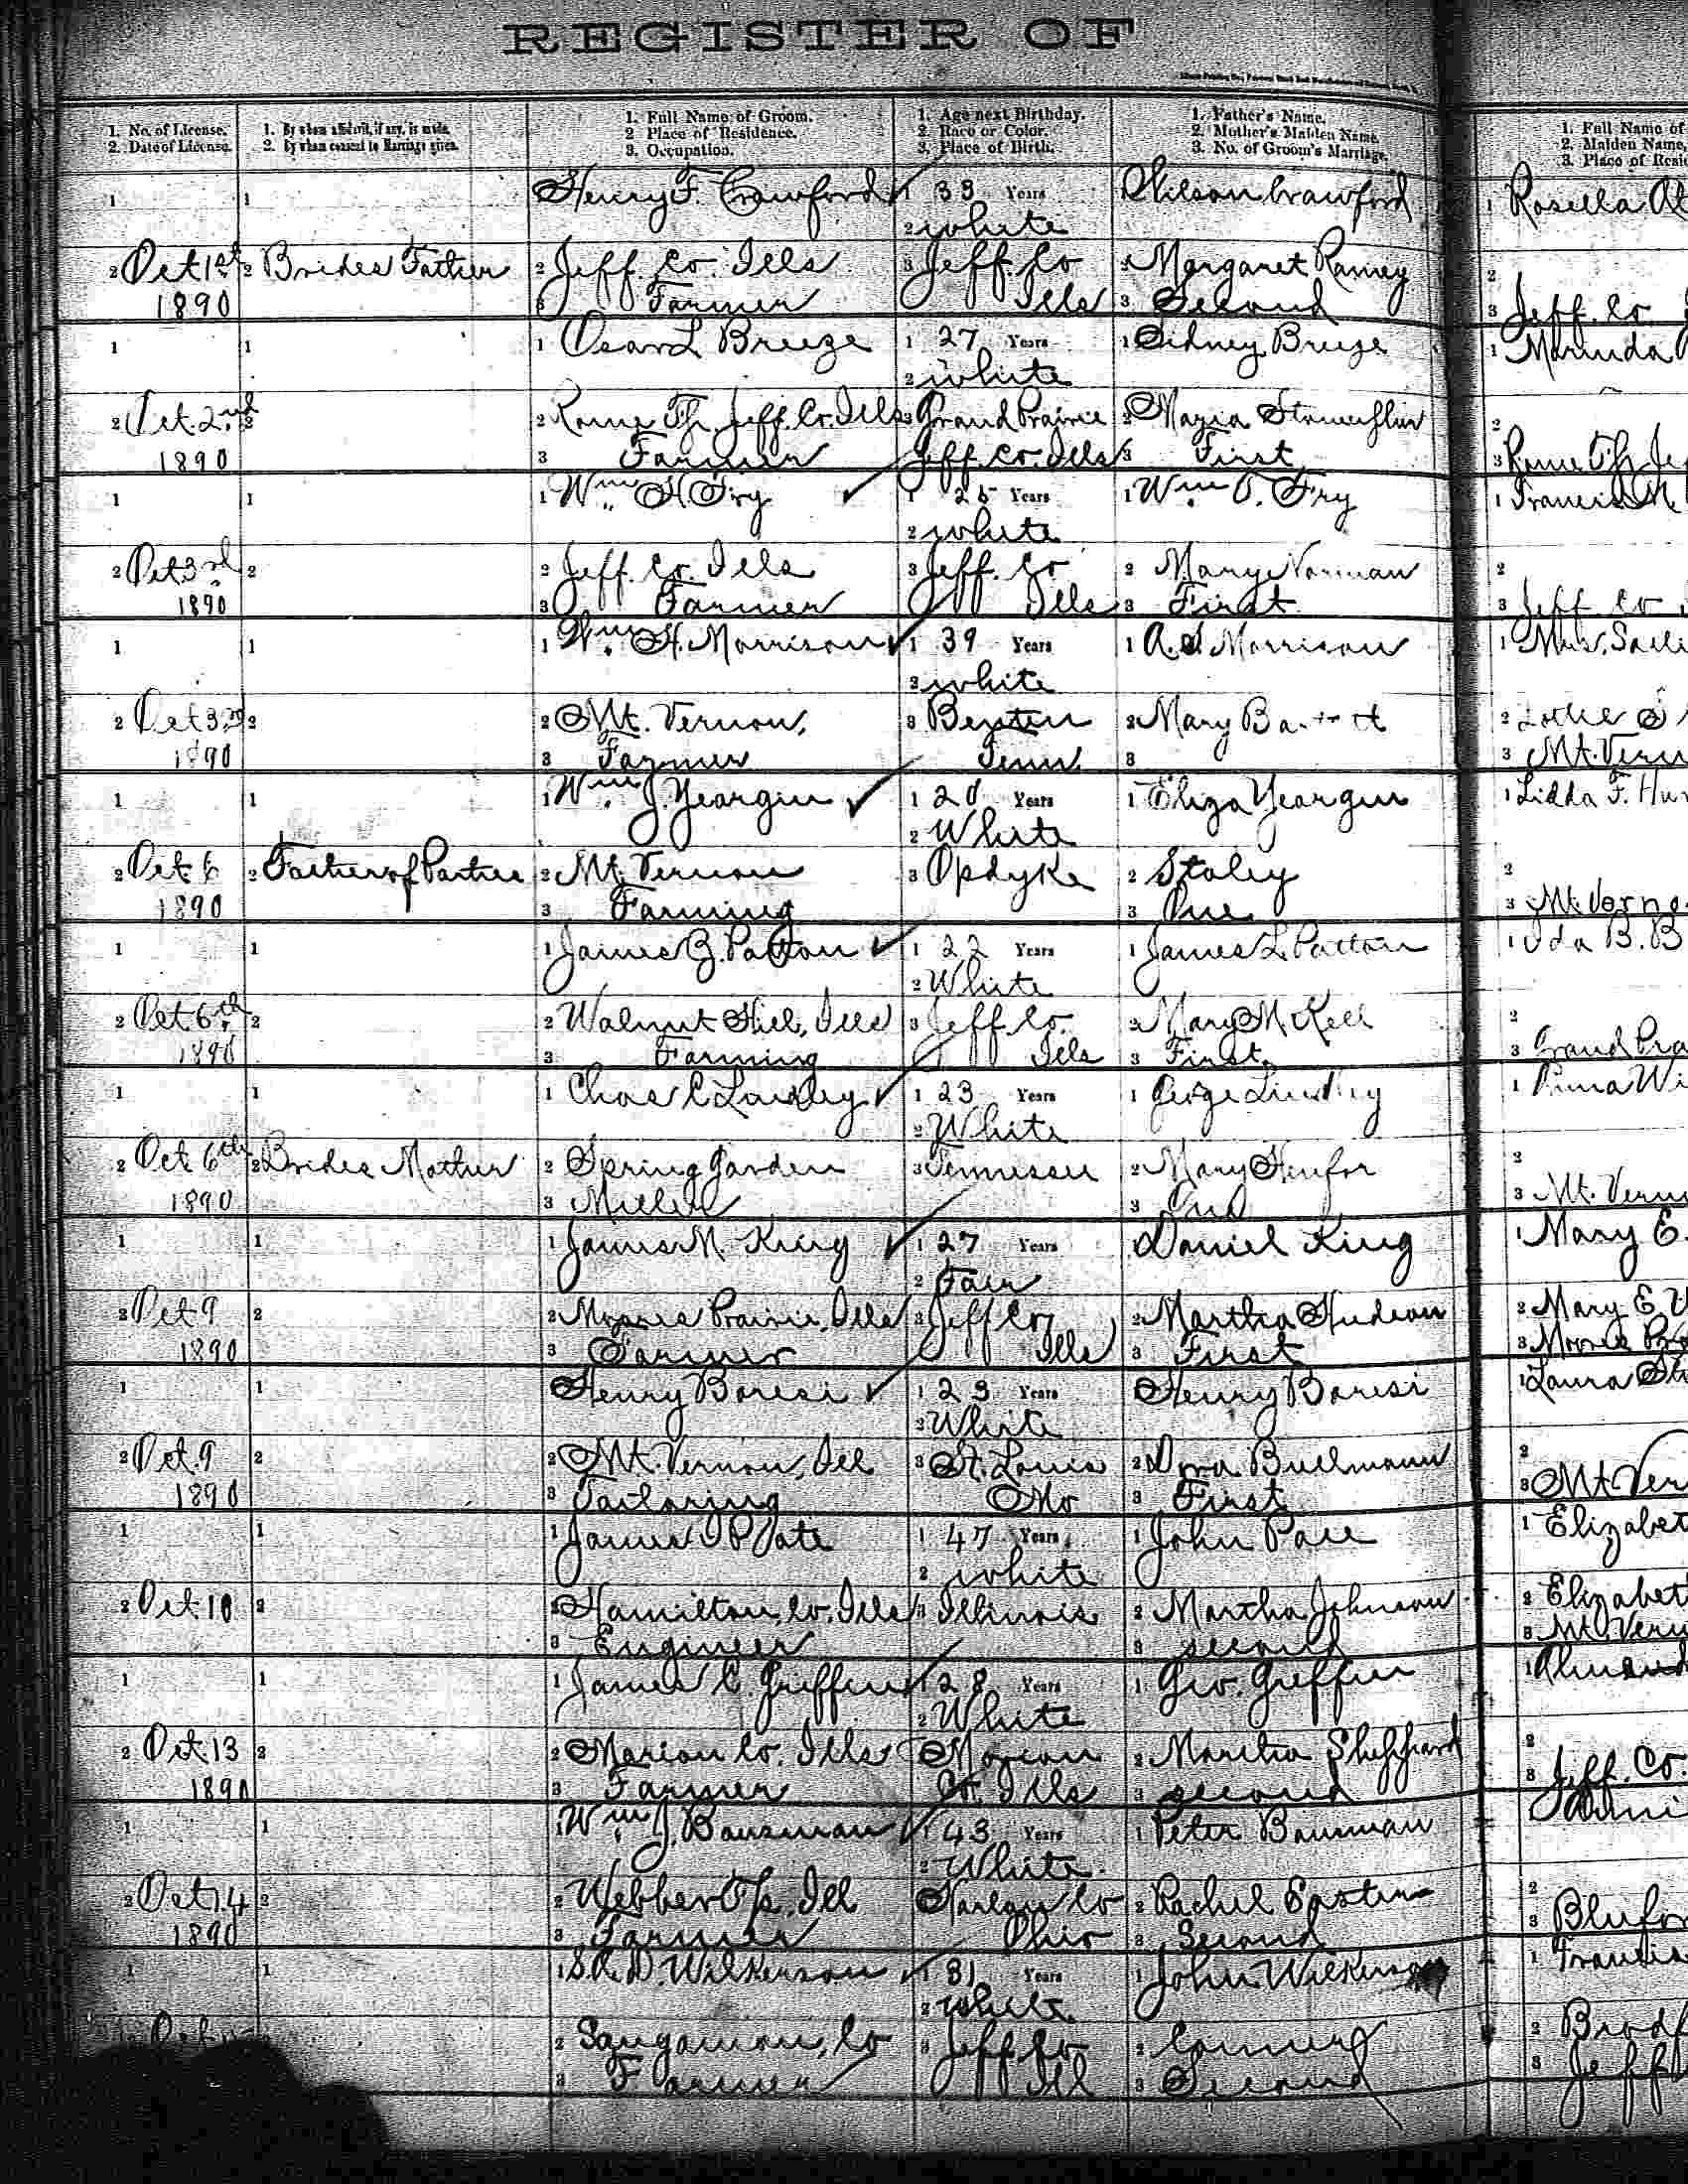 REGISTER OF
1. No. of License.
2. Date of License.
1. By whom affidavit, if any, is made.
2. By whom consent to Marriage given.
1. Full Name of Groom.
2 Place of Residence.
3. Occupation.
1. Age next Birthday.
2. Race or Color.
3. Place of Birth.
1. Father's Name.
2. Mother's Maiden Name.
3. No. of Groom's Marriage.
1. Full Name of
2. Maiden Name,
3. Place of Resi
1 1 Henry F. Crawford 33 Years Wilson Crawford 1 Rosella Al
2 white
2 Oct 1st 2 Brides Father 2 Jeff. Co. Ills 3 Jeff Co 2 Margaret Raney 2
1890 3 Farmer Ills 3 Second 3 Jeff. Co
1 1 1 Oscar L Breeze 1 27 Years 1 Sidney Breeze 1 Marinda
2 white
2 Oct. 2nd 2 2 Rome Tp. Jeff. Co. Ills 3 Grand Prairie 2 2
1890 3 Farmer Jeff. Co. Ills 3 First 3 Rome Tp Je
1 1 1 Wm H. Fry 1 Years 1 Wm T. Fry 1 Francis M
2 white
2 Oct 3rd 2 2 Jeff. Co. Ills 3 Jeff. Co 2 Mary Norman 2
1890 3 Farmer Ills 3 First 3 Jeff Co
1 1 1 Wm H. Morrison 1 39 Years 1 A. S. Morrison 1 Mrs. Salli
2 white
2 Oct 3rd 2 2 Mt. Vernon, 3 Benton 2 Mary 2
1890 3 Farmer Tenn. 3 3 Mt. Vern
1 1 1 Wm J. Yeargin 1 Years 1 Eliza Yeargin 1 Lidda F. Hu
2 White
2 Oct. 6 2 Father of Parties 2 Mt. Vernon 3 Opdyke 2 Staley 2
1890 3 Farming 3 One 3 Mt. Verno
1 1 1 James G. Patton 1 22 Years 1 James L. Patton 1 Ida B. B
2 White
2 Oct 6th 2 2 Walnut Hill, Ills 3 Jeff Co. 2 Mary McKee 2
1890 3 Farming Ills 3 First 3 Grand Pra
1 1 1 Chas C 1 23 Years 1 George 1 Wi
2 White
2 Oct 6th 2 Brides Mother 2 Spring Garden 3 Tennessee 2 Mary 2
1890 3 Miller 3 2nd 3 Mt. Vern
1 1 1 James M. King 1 27 Years Daniel King 1 Mary E.
2 Fair
2 Oct. 9 2 2 Moores Prairie, Ills 3 Jeff Co 2 Martha Hudson 2 Mary E
1890 3 Farmer Ills 3 First 3 Moores Pra
1 1 Henry Boresi 1 23 Years Henry Boresi 1 Laura St
2 White
2 Oct. 9 2 2 Mt. Vernon, Ill 3 St. Louis 2 Dora Buelmann 2
1890 3 Tailoring Mo 3 First 3 Mt Ver
1 1 1 James P Pate 1 47 Years 1 John Pace 1 Elizabet
2 white
2 Oct. 10 2 2 Hamilton, Co. Ills 3 Illinois 2 Martha Johnson 2 Elizabet
3 Engineer 3 second 3 Mt. Vern
1 1 1 James C. Griffin 1 28 Years 1 Geo. Griffin 1
2 White
2 Oct. 13 2 2 Marion Co. Ills Marion 2 Martha Sheppard 2
1890 3 Farmer Co. Ills 3 second 3 Jeff. Co.
1 1 1 Wm J. Bausman 1 43 Years 1 Peter Bausman
2 White
2 Oct 14 2 2 Webber Tp. Ill Harlan Co 2 Rachel 2
1890 3 Farmer Ohio 3 Second 3 Blufor
1 1 1 S. R. D. Wilkerson 1 31 Years 1 John Wilkerson 1 Francis
2 white
2 Oct 2 Sangamon, Co 3 Jeff Co 2 2 Brodf
3 Farmer Ill 3 Second 3 Jeff